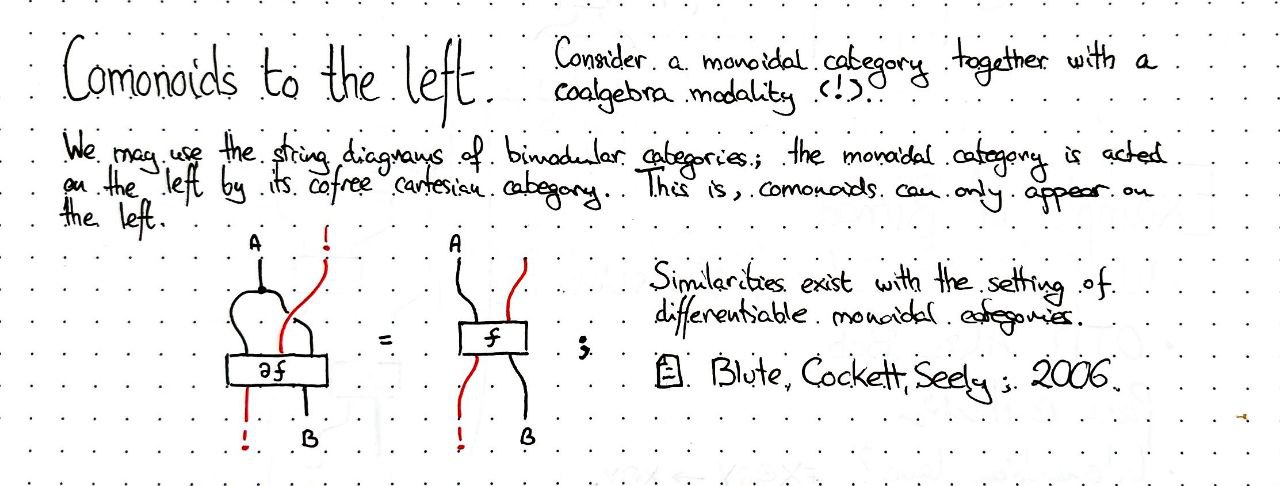 Comonoids to the left.
Consider a monoidal category together with a
coalgebra modality (!).
We may use the string diagrams of bimodular categories; the monoidal category is acted
on the left by its cofree cartesian category. This is, comonoids can only appear on
the left.
A ! A
∂f = f ;
! B ! B
Similarities exist with the setting of
differentiable monoidal categories.
Blute, Cockett, Seely; 2006.